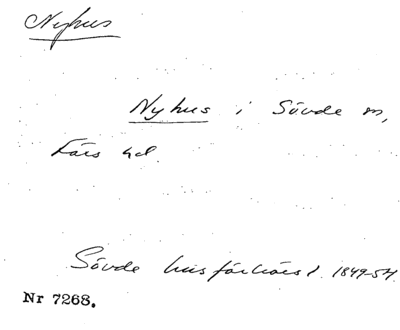 Nyhus
Nyhus i Sövde sn,
Färs hd.
Sövde husförhörsl. 1849-54.
Nr 7268.